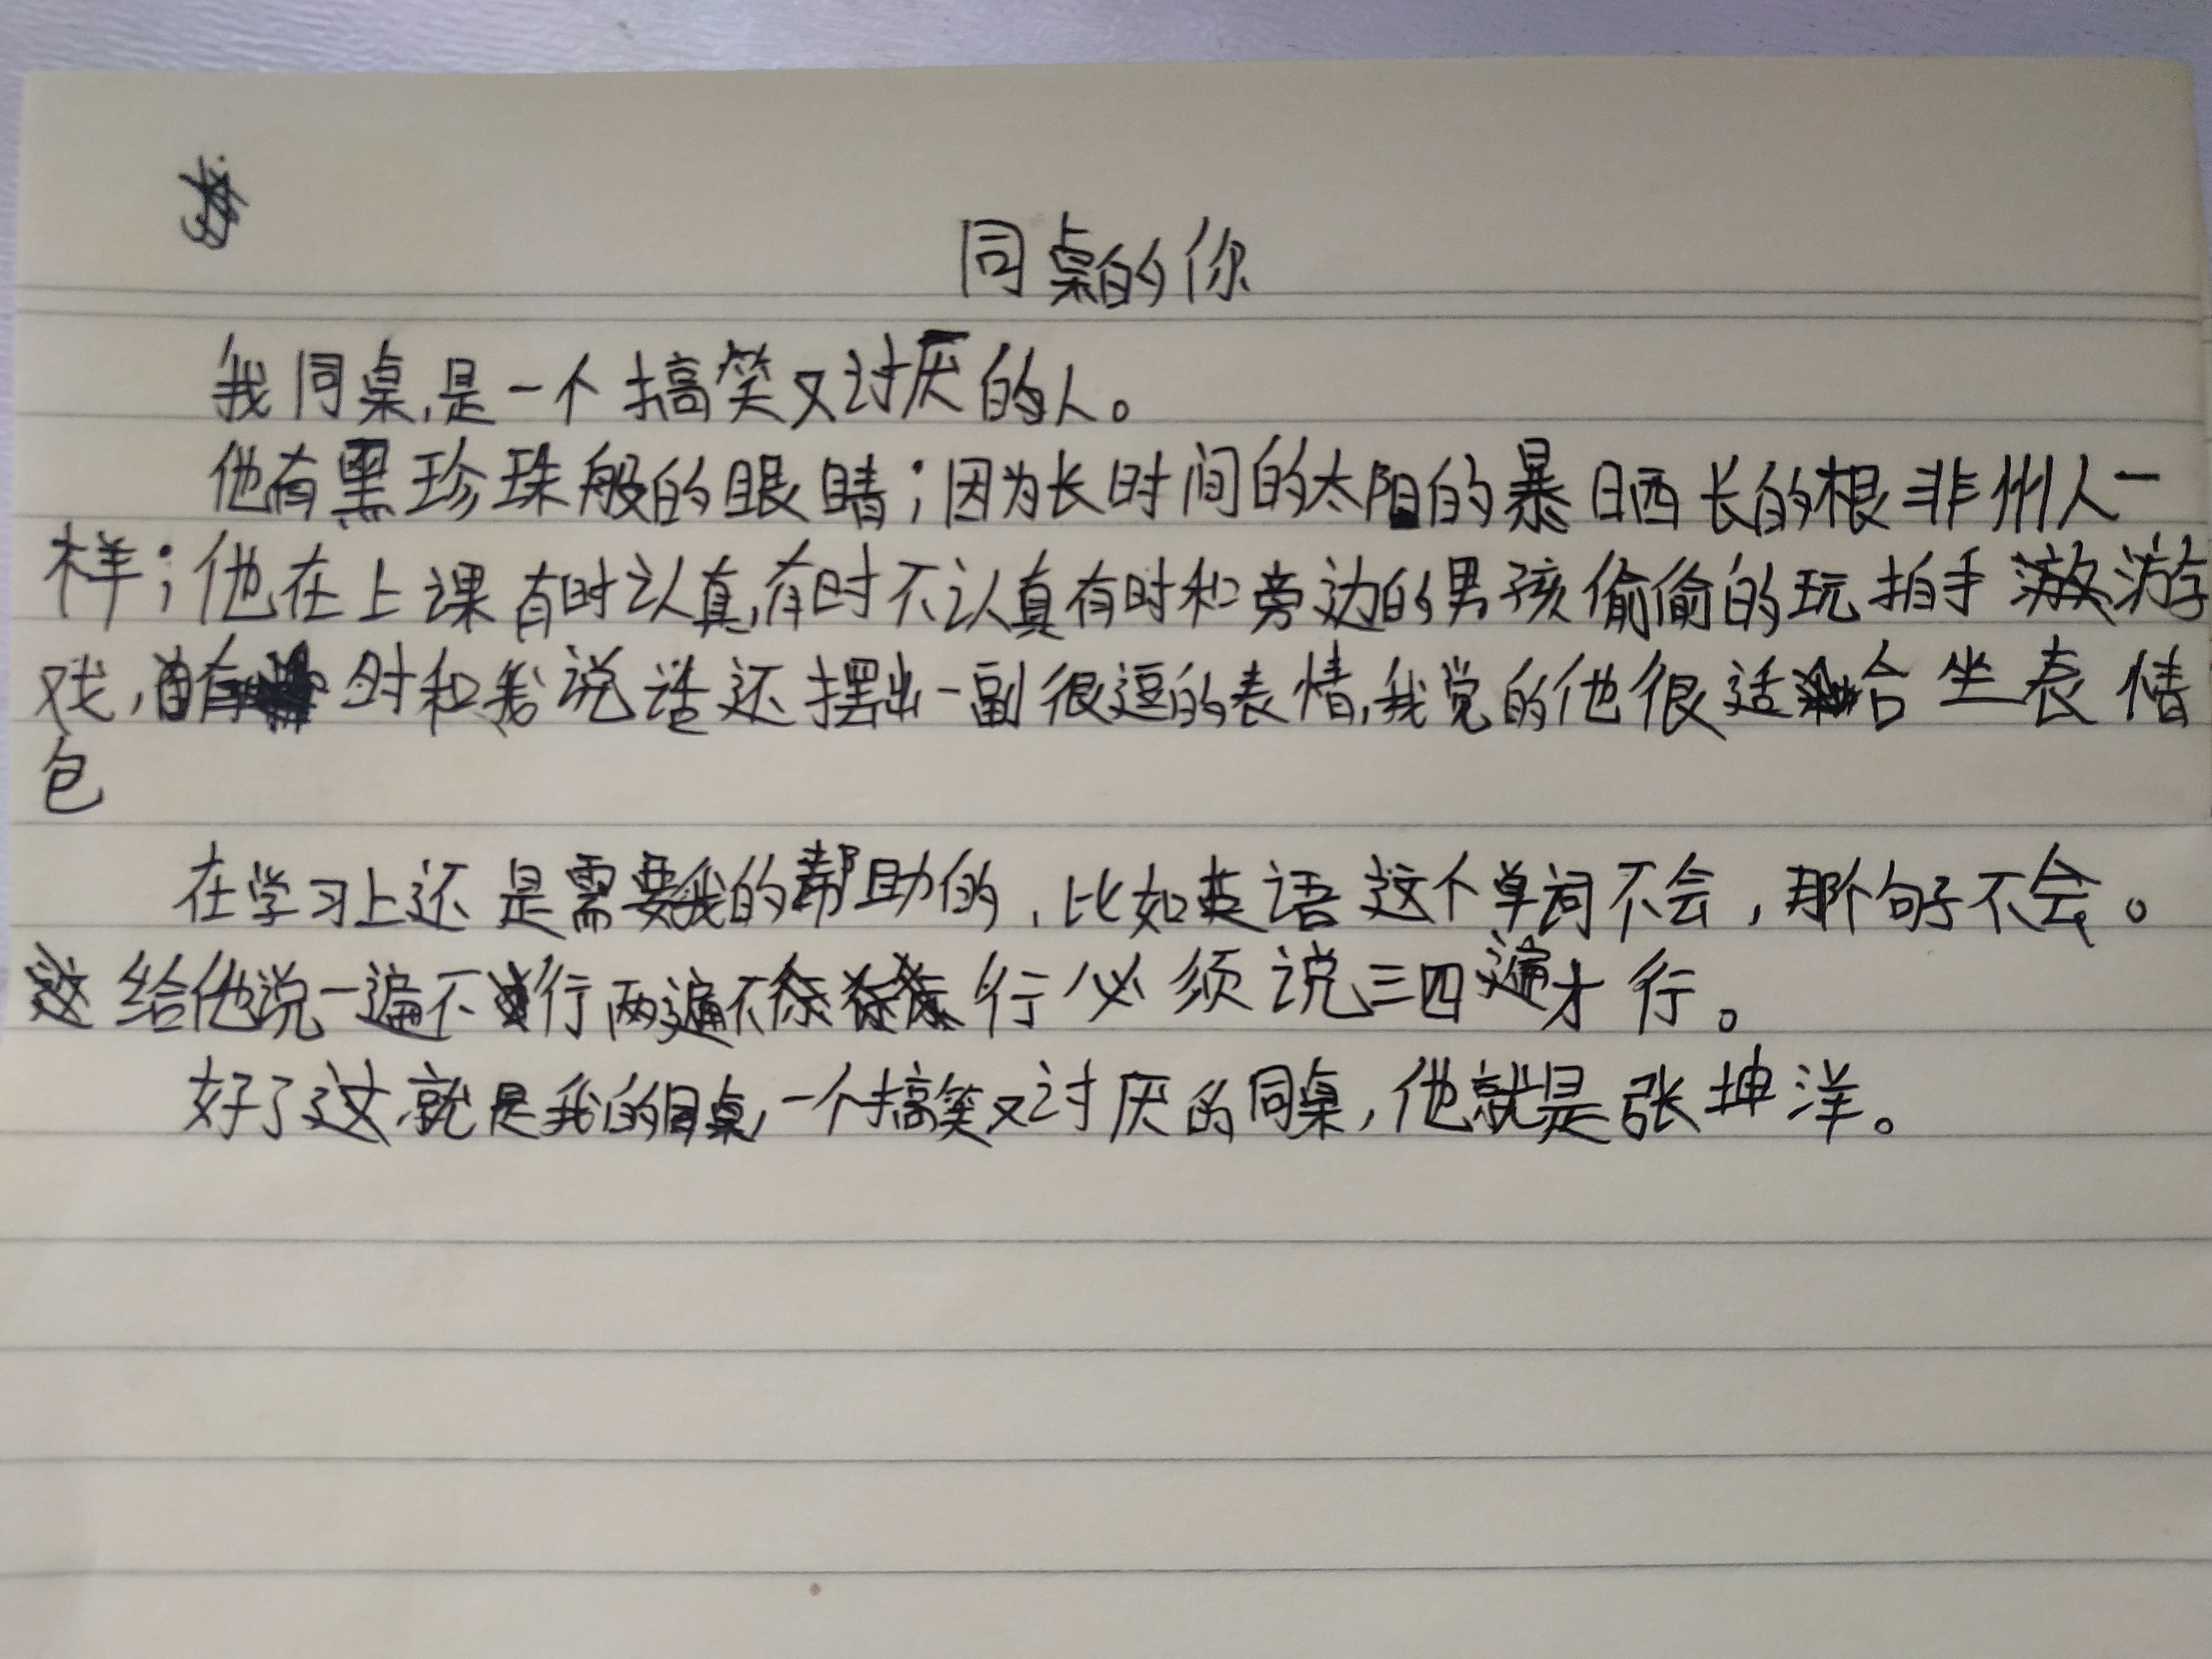 同桌的你
我同桌,是一个搞笑又讨厌的人。
他有黑珍珠般的眼睛；因为长时间的太阳的暴晒长的根非州人一
样；他在上课有时认真,有时不认真有时和旁边的男孩偷偷的玩拍手游
戏,有时和我说话还摆出一副很逗的表情,我觉的他很适合坐表情
包
在学习上还是需要我的帮助的,比如英语这个单词不会,那个句子不会。
给他说一遍不行两遍不行必须说三四遍才行。
好了这就是我的同桌,一个搞笑又讨厌的同桌,他就是张坤洋。